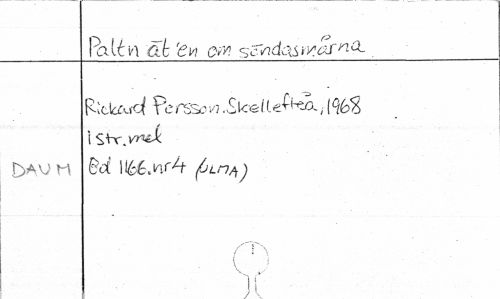 Paltn āt'en om sōndasmårna
Rickard Persson. Skellefteå, 1968
1 str. mel
DAUM Bd 1166. nr 4 (ULMA)